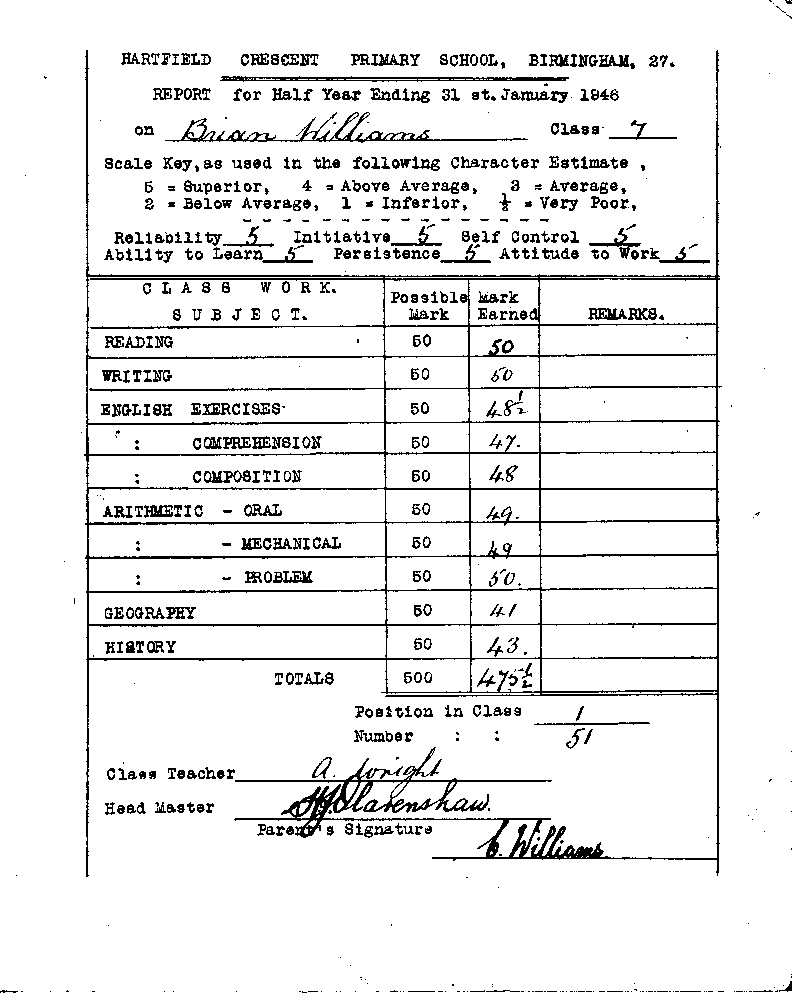 HARTFIELD CRESCENT PRIMARY SCHOOL, BIRMINGHAM, 27.
REPORT for Half Year Ending 31 st. January 1946
on Brian Williams Class 7
Scale Key, as used in the following Character Estimate ,
5 = Superior, 4 = Above Average, 3 = Average,
2 = Below Average, 1 = Inferior, ½ = Very Poor,
Reliability 5 Initiative 5 Self Control 5
Ability to Learn 5 Persistence 5 Attitude to Work 5
CLASS WORK. Possible Mark
SUBJECT. Mark Earned REMARKS.
READING 50 50
WRITING 50 50
ENGLISH EXERCISES 50 48½
: COMPREHENSION 50 47.
: COMPOSITION 50 48
ARITHMETIC - ORAL 50 49.
: - MECHANICAL 50 49
: - PROBLEM 50 50.
GEOGRAPHY 50 41
HISTORY 50 43.
TOTALS 500 475½
Position in Class 1
Number : : 51
Class Teacher A. Wright
Head Master
Parent's Signature
C. Williams